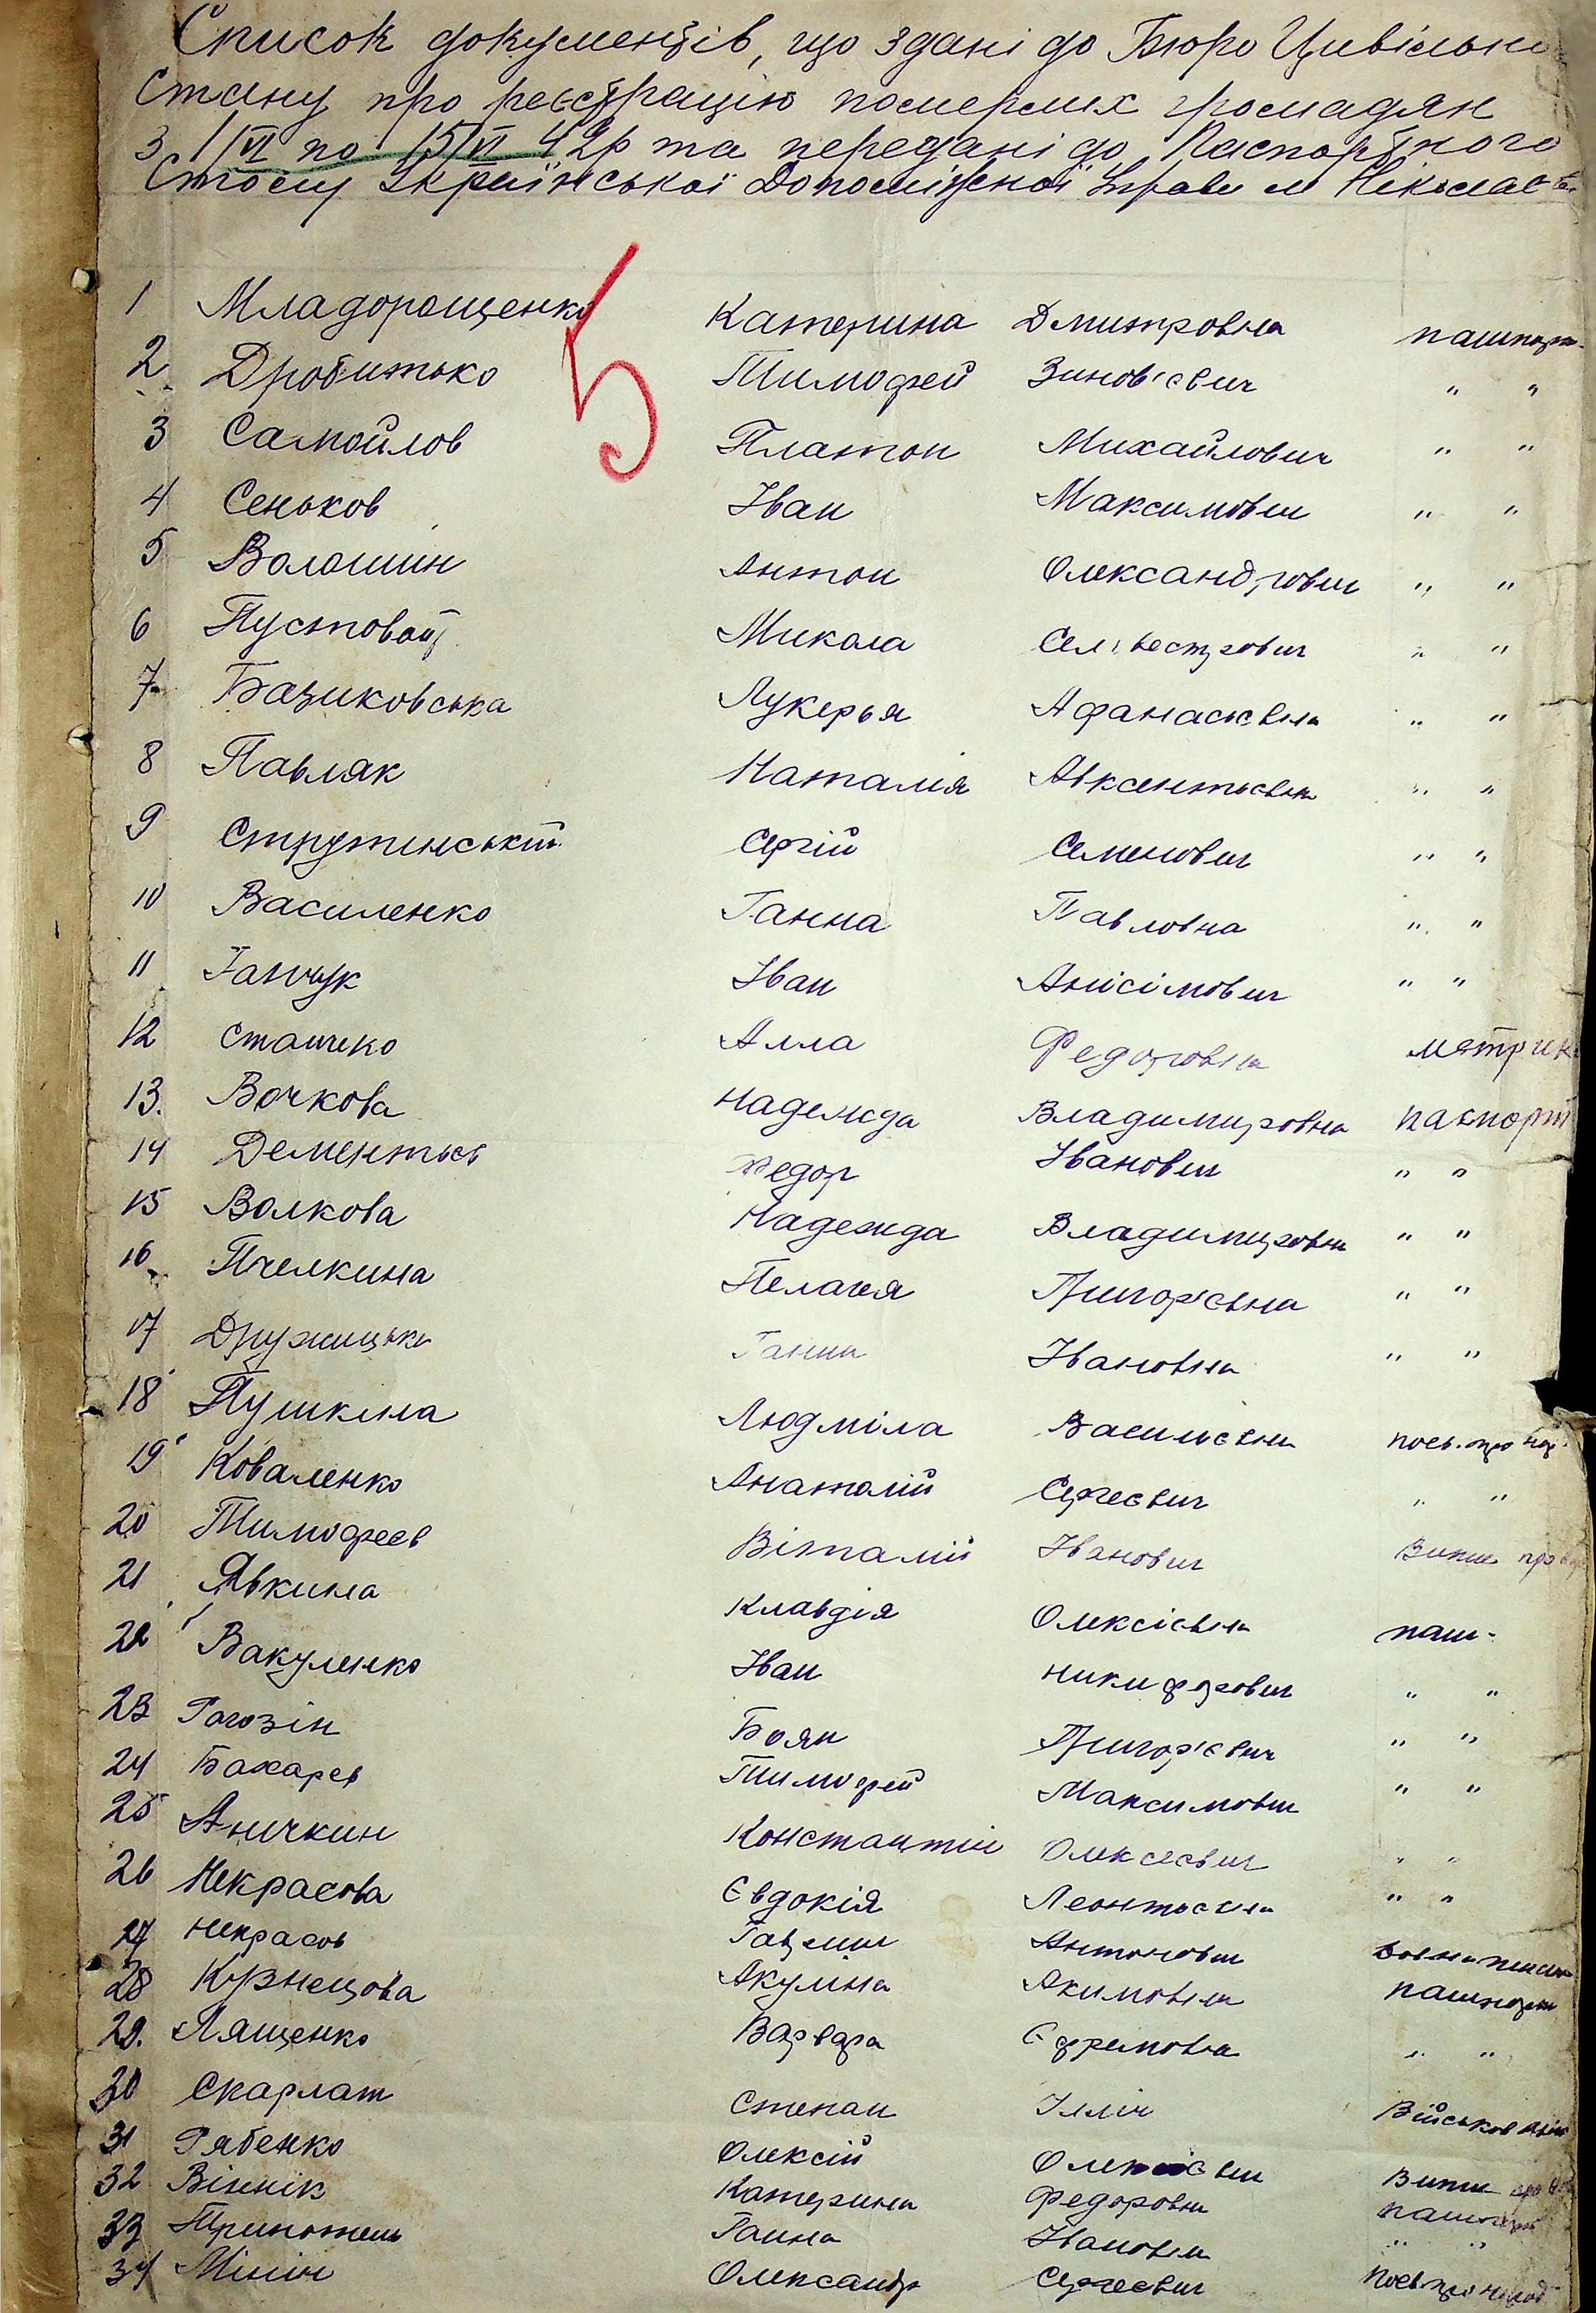 Список документів, що здані до Бюро Цивільно
Стану про реєстрацію померлих громадян
З 1/VI по 15/VI 42р та передані до Паспортного
Столу Української Допоміжної Управи м Ніколаєв
5
1 Младорощенко Катерина Дмитровна пашпорт
2 Дробитько Тимофей Зинов'євич " "
3 Самойлов Платон Михайлович " "
4 Сеньков Іван Максимович " "
5 Волошин Антон Олександрович " "
6 Пустовойт Микола Селівестрович " "
7 Базиковська Лукерья Афанасьєвна " "
8 Павляк Наталія Авксентьєвна " "
9 Стружинський Сергій Семенович " "
10 Василенко Ганна Павловна " "
11 Ганчук Іван Анісімович " "
12 Сташко Алла Федоровна метрик
13. Вочкова Надежда Владимировна паспорт
14 Дементьєв Федор Іванович " "
15 Волкова Надежда Владимировна " "
16 Пчелкина Пелагея Григор'євна " "
17 Дружицька Ганна Івановна " "
18 Пушкина Людміла Васильєвна посв. про нар.
19 Коваленко Анатолій Сергеєвич " "
20 Тимофеев Віталій Іванович Випис про
21 Явкина Клавдія Олексієвна паш-
22 Вакуленко Іван Никифорович " "
23 Рагозін Боян Григор'євич " "
24 Бахарев Тимофей Максимович " "
25 Аничкин Константін Олексеєвич " "
26 Некрасова Євдокія Леонтьєвна " "
27 Некрасов Гаврил Антонович
28 Кузнецова Акуліна Якимовна пашпорт
29. Лященко Варвара Єфремовна " "
30 Скарлат Степан Ілліч Військов
31 Рябенко Олексій Олексієвич Випис про
32 Віннік Катерина Федоровна пашпорт
33 Ганна Івановна " "
34 Мініч Олександр Сергеєвич посв про народ